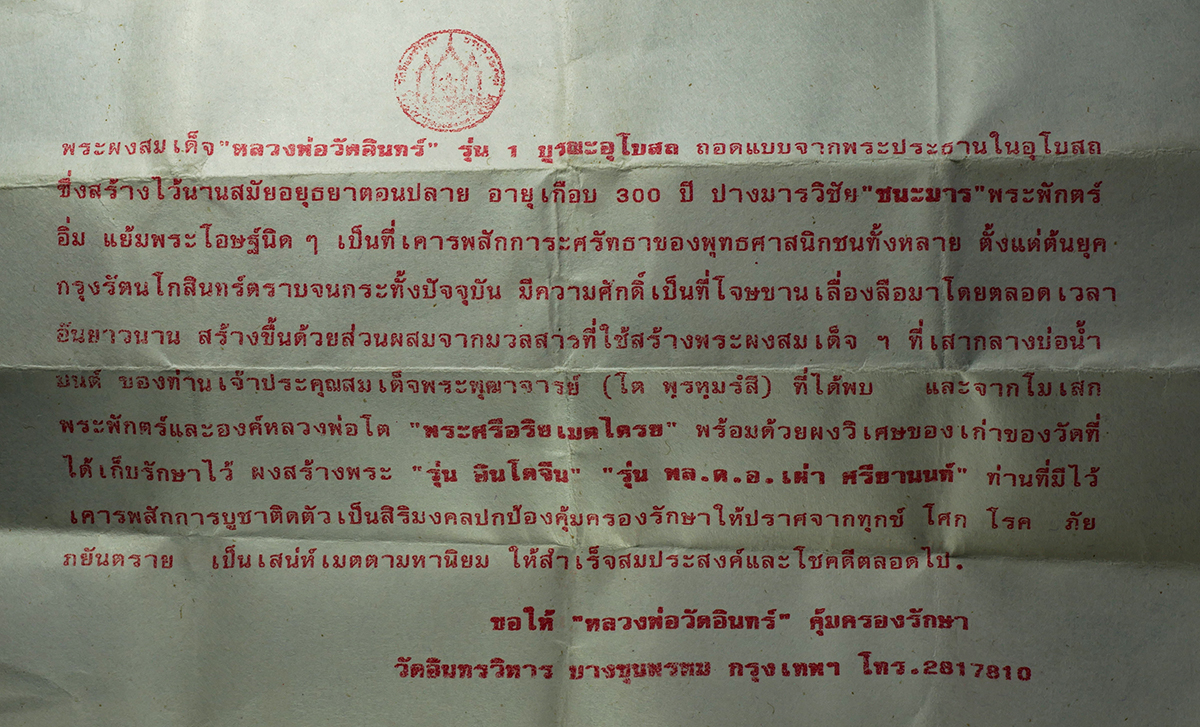 พระผงสมเด็จ "หลวงพ่อวัดอินทร์" รุ่น 1 บูรณะอุโบสถ ถอดแบบจากพระประธานในอุโบสถ
ซึ่งสร้างไว้นานสมัยอยุธยาตอนปลาย อายุเกือบ 300 ปี ปางมารวิชัย "ชนะมาร" พระพักตร์
อิ่ม แย้มพระโอษฐ์นิด ๆ เป็นที่เคารพสักการะศรัทธาของพุทธศาสนิกชนทั้งหลาย ตั้งแต่ต้นยุค
กรุงรัตนโกสินทร์ตราบจนกระทั้งปัจจุบัน มีความศักดิ์เป็นที่โจษขานเลื่องลือมาโดยตลอดเวลา
อันยาวนาน สร้างขึ้นด้วยส่วนผสมจากมวลสารที่ใช้สร้างพระผงสมเด็จ ฯ ที่เสากลางบ่อน้ำ
มนต์ ของท่านเจ้าประคุณสมเด็จพระพุฒาจารย์ (โต พฺรหฺมรํสี) ที่ได้พบ และจากโมเสก
พระพักตร์และองค์หลวงพ่อโต "พระศรีอริยเมตไตรย" พร้อมด้วยผงวิเศษของเก่าของวัดที่
ได้เก็บรักษาไว้ ผงสร้างพระ "รุ่น อินโดจีน" "รุ่น พล.ต.อ.เผ่า ศรียานนท์" ท่านที่มีไว้
เคารพสักการบูชาติดตัวเป็นสิริมงคลปกป้องคุ้มครองรักษาให้ปราศจากทุกข์ โศก โรค ภัย
ภยันตราย เป็นเสน่ห์เมตตามหานิยม ให้สำเร็จสมประสงค์และโชคดีตลอดไป.
ขอให้ "หลวงพ่อวัดอินทร์" คุ้มครองรักษา
วัดอินทรวิหาร บางขุนพรหม กรุงเทพฯ โทร.2817810